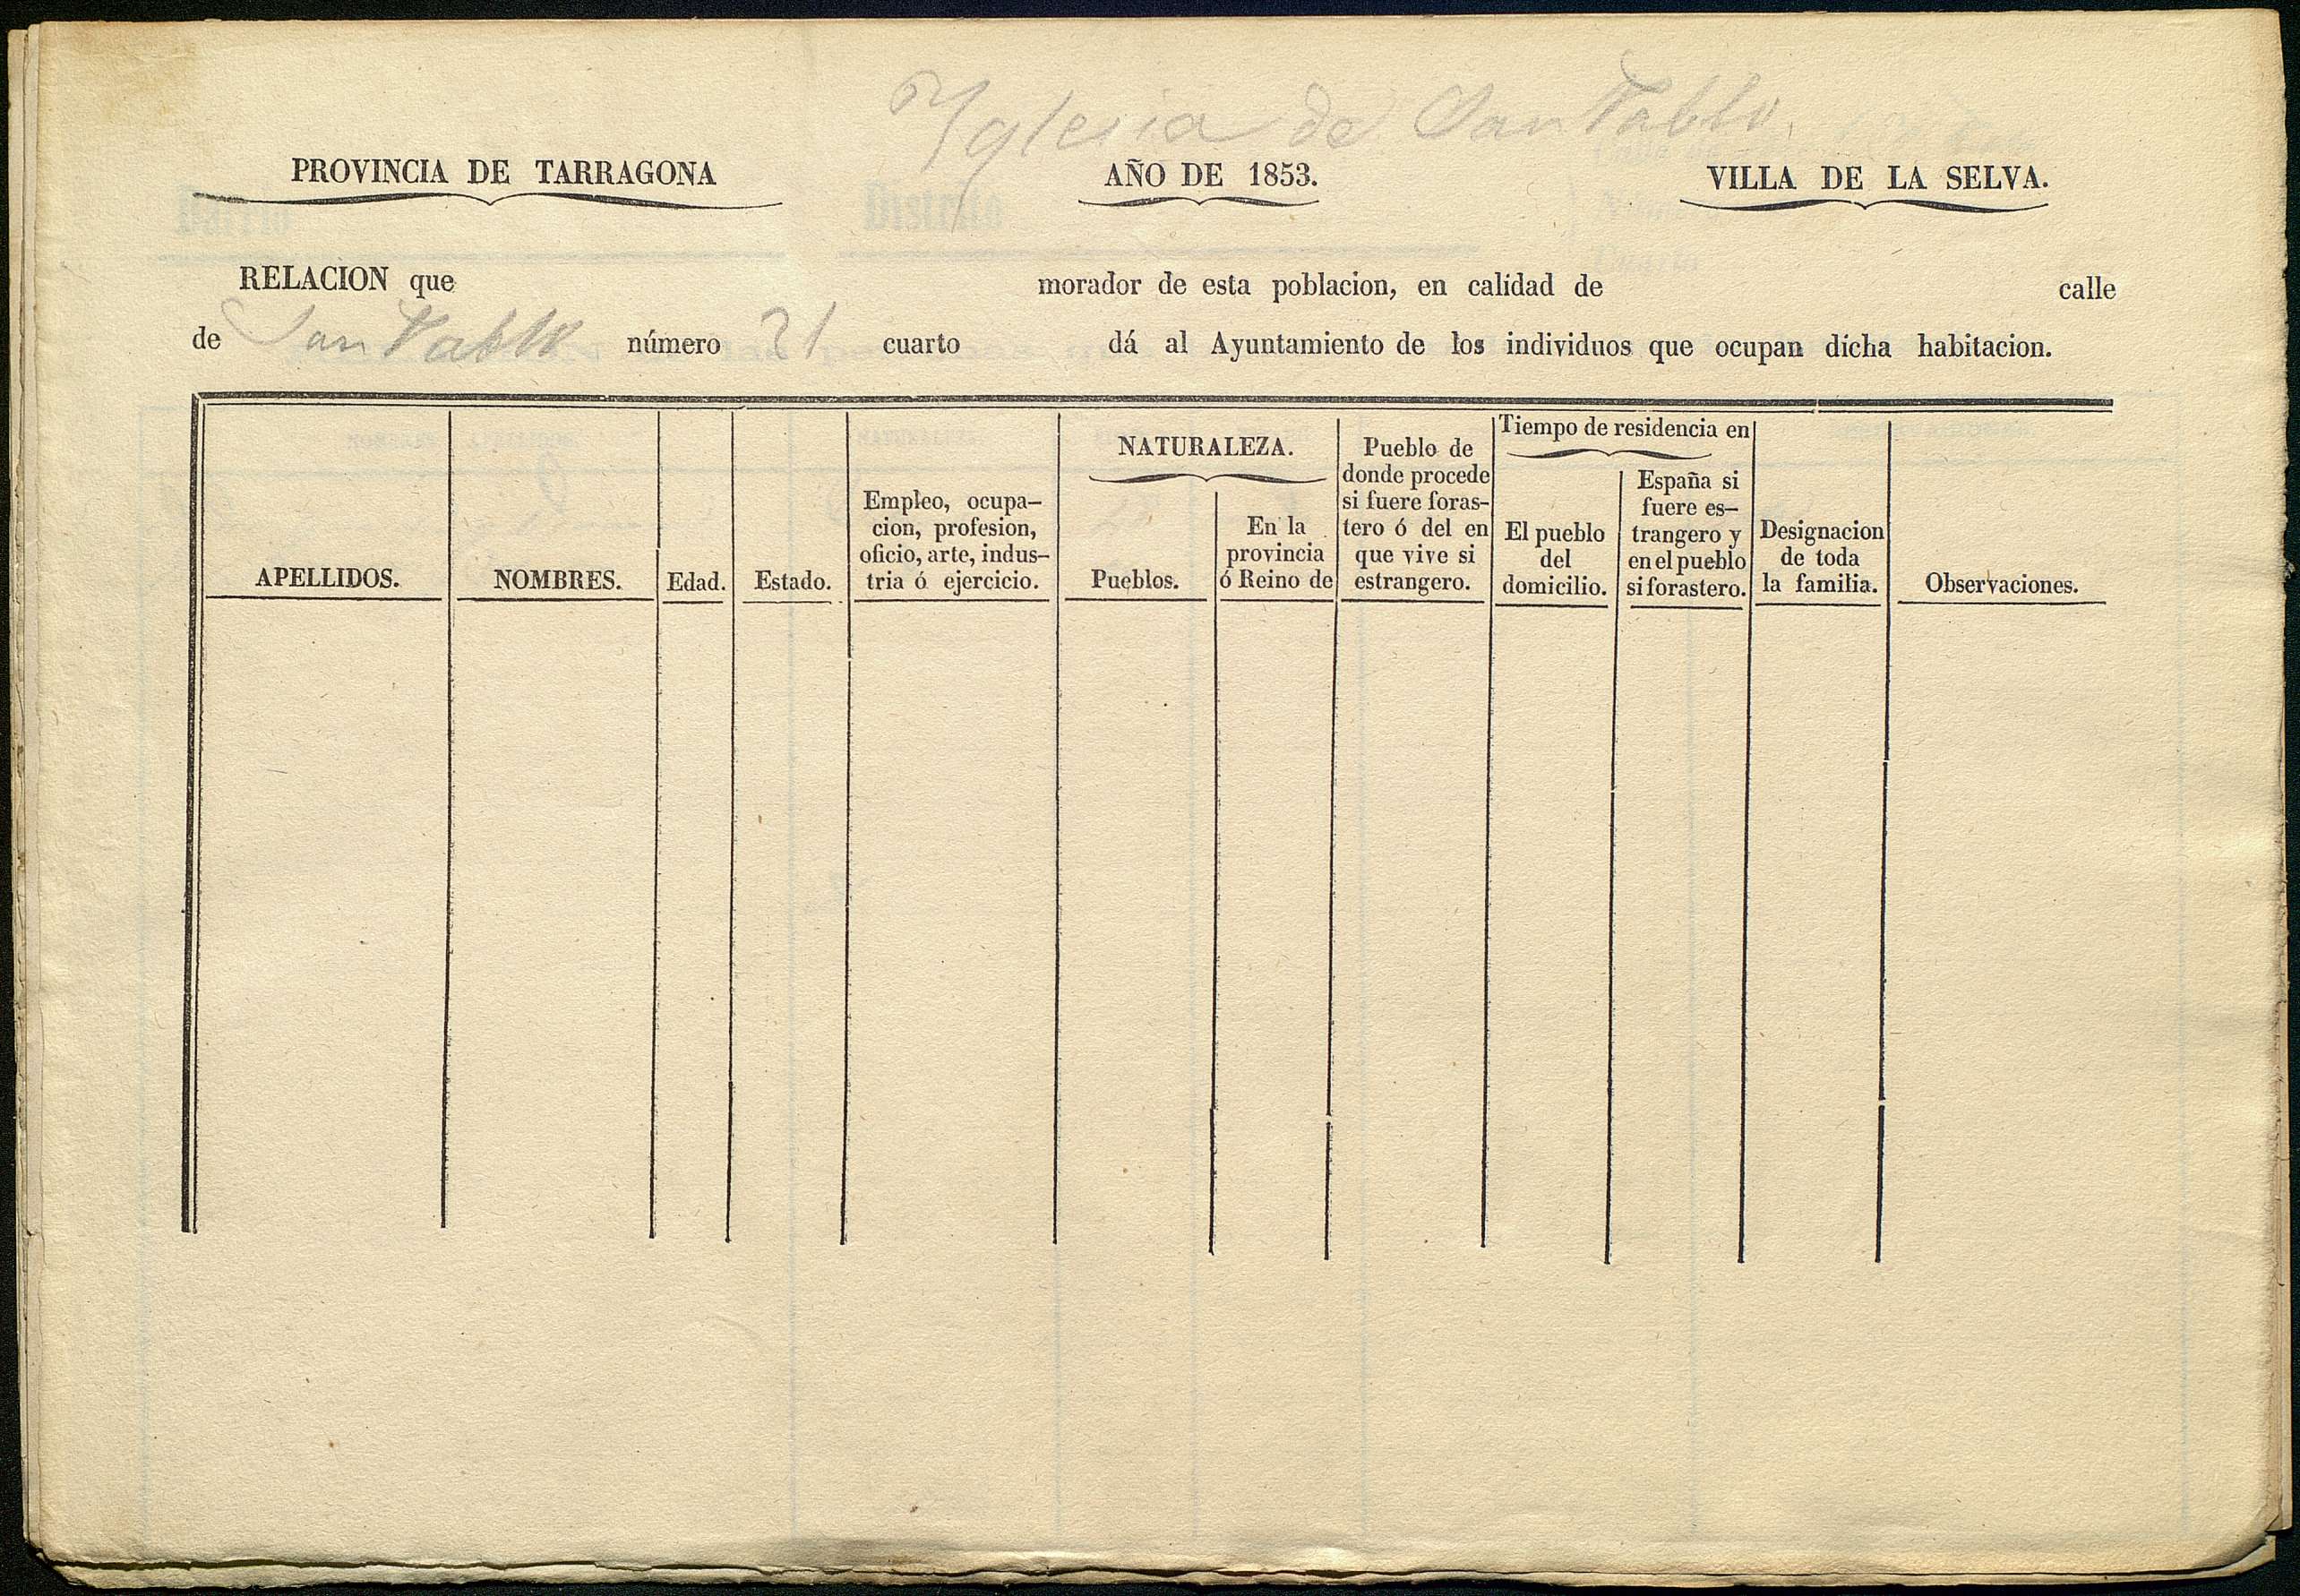 Yglesia de San Pablo.
PROVINCIA DE TARRAGONA AÑO DE 1853. VILLA DE LA SELVA.
RELACION que morador de esta poblacion, en calidad de calle
de San Pablo número 21 cuarto dá al Ayuntamiento de los individuos que ocupan dicha habitacion.
APELLIDOS.
NOMBRES.
Edad.
Estado.
Empleo, ocupa-
cion, profesion,
oficio, arte, indus-
tria ó ejercicio.
NATURALEZA.
Pueblos.
En la
provincia
ó Reino de
Pueblo de
donde procede
si fuere foras-
tero ó del en
que vive si
estrangero.
Tiempo de residencia en
El pueblo
del
domicilio.
España si
fuere es-
trangero y
en el pueblo
si forastero.
Designacion
de toda
la familia.
Observaciones.